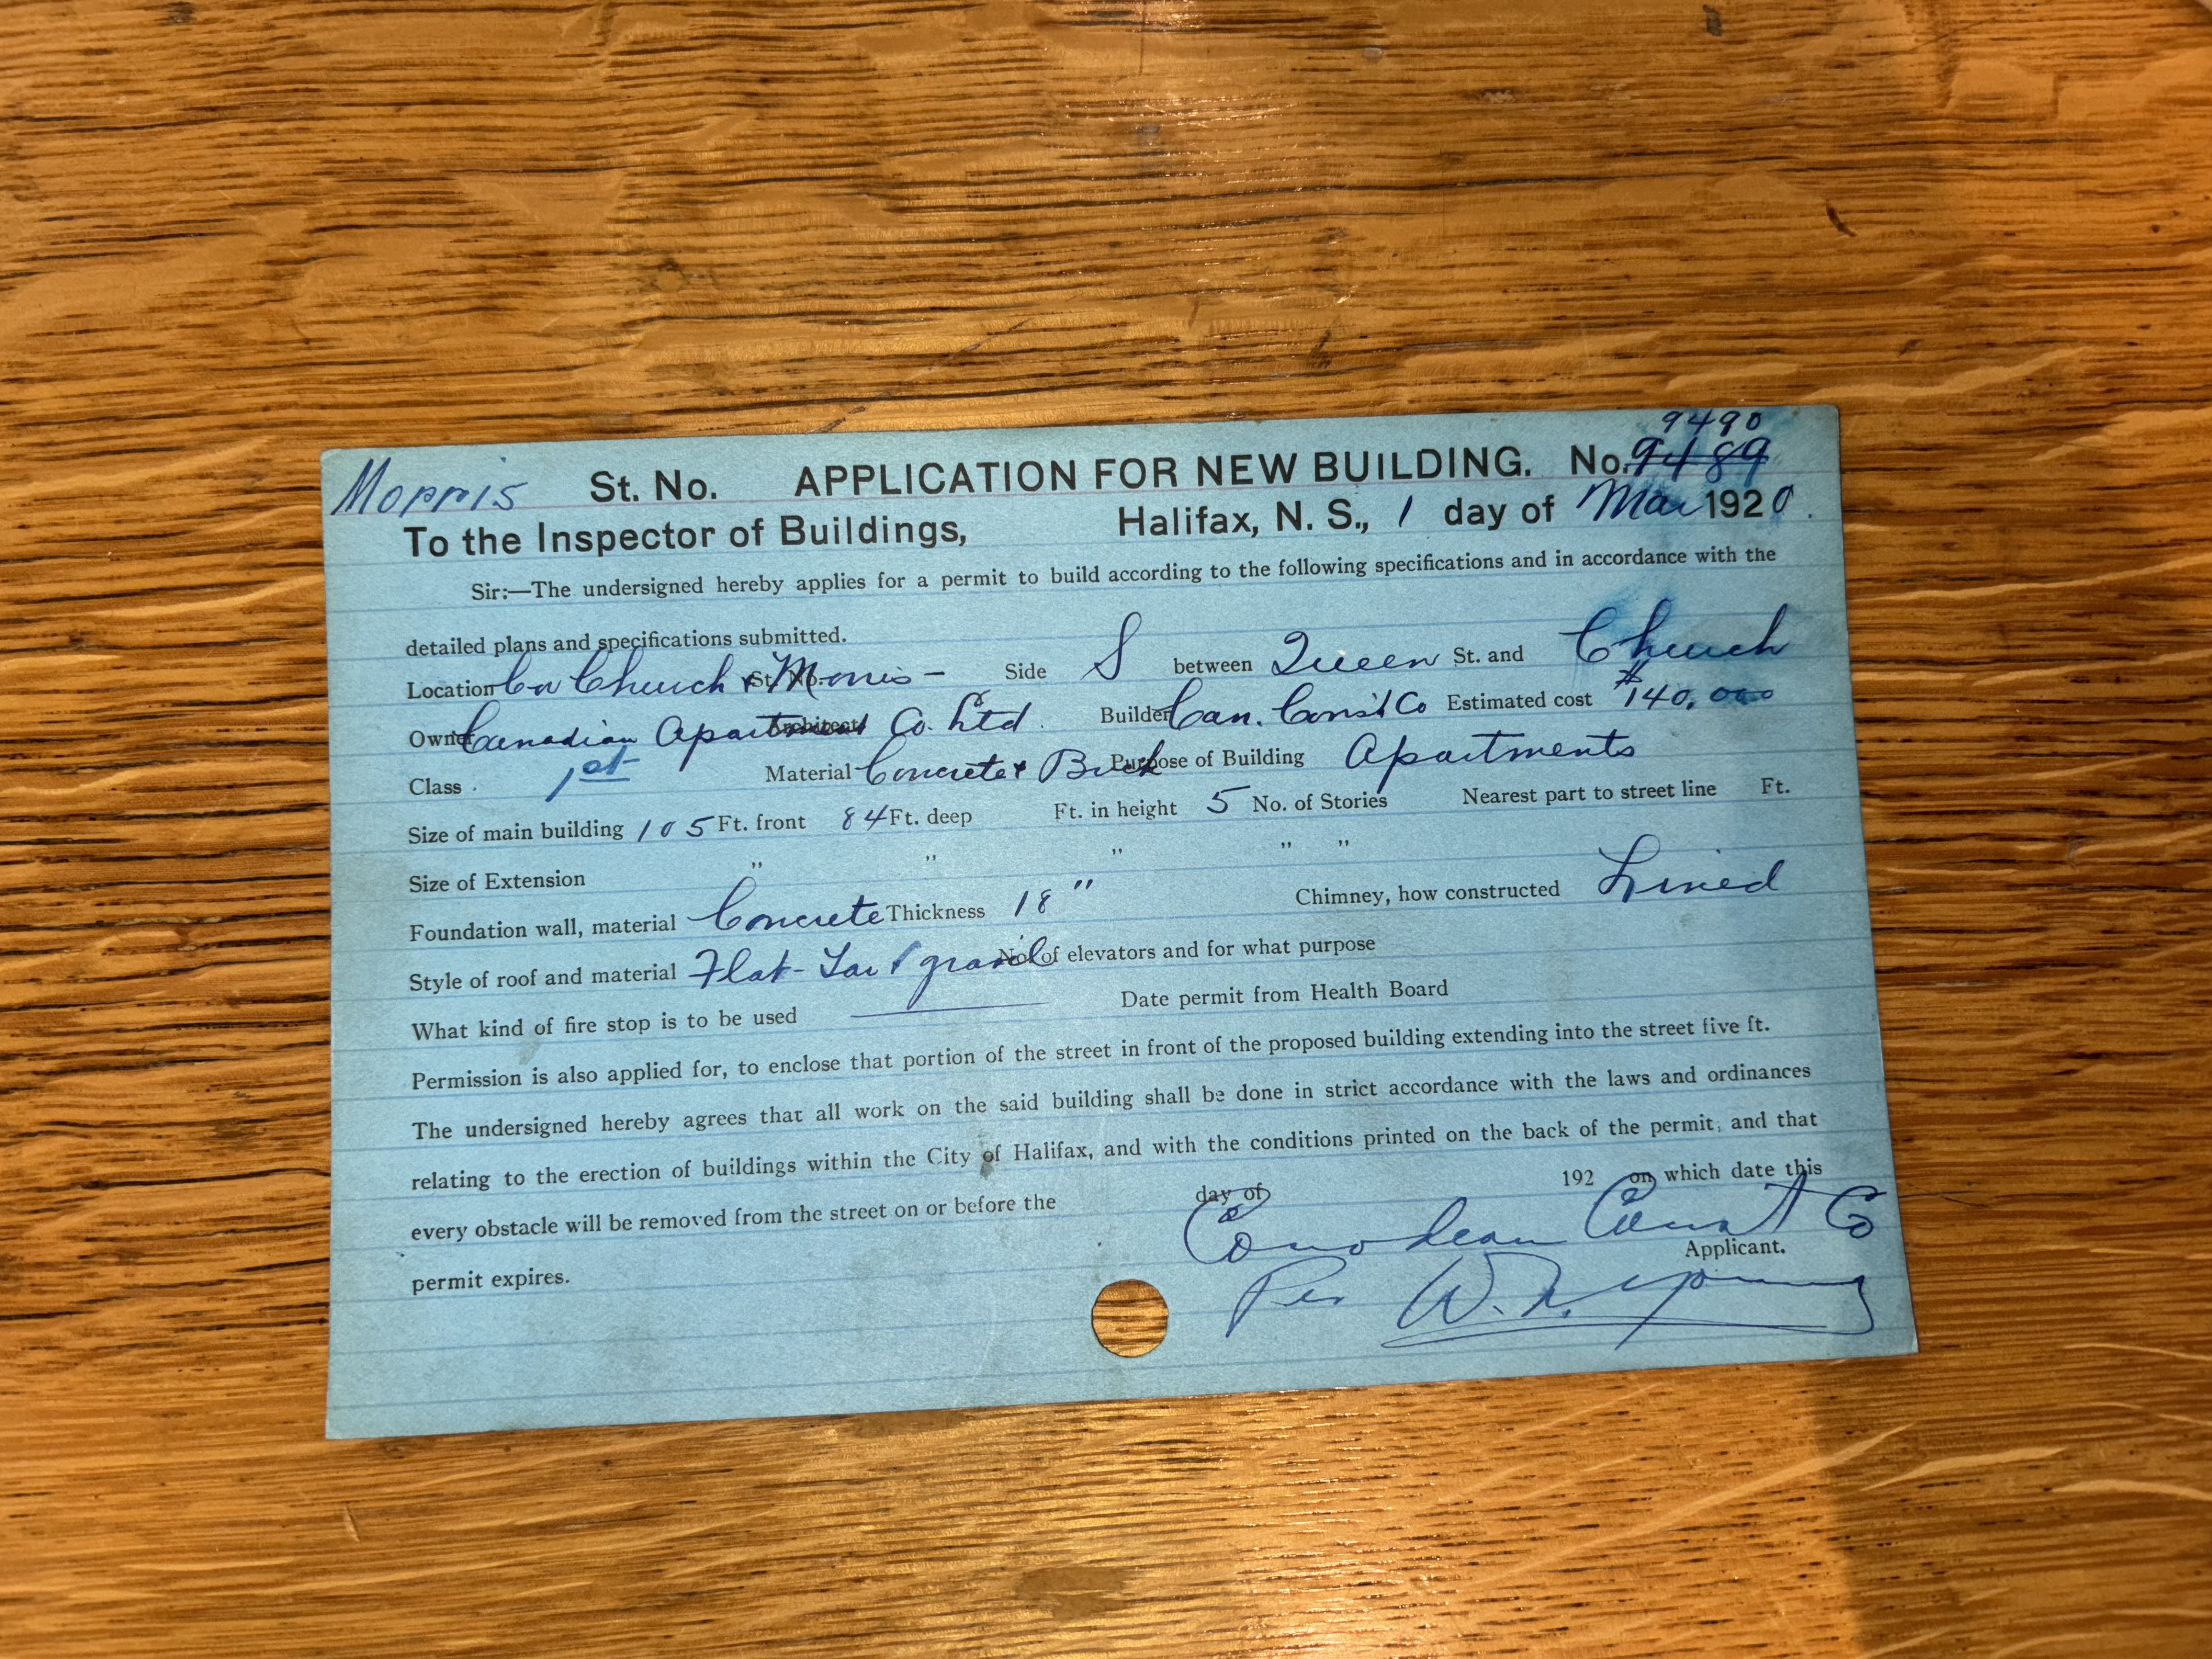 9490
Morris St. No. APPLICATION FOR NEW BUILDING. No. 9489
To the Inspector of Buildings, Halifax, N. S., 1 day of Mar 1920.
Sir:—The undersigned hereby applies for a permit to build according to the following specifications and in accordance with the
detailed plans and specifications submitted.
Location Cor Church & Morris - St. No. Side S between Queen St. and Church
Owner Canadian Apartment Co. Ltd. Architect Builder Can. Const Co Estimated cost $140,000
Class 1st Material Concrete & Brick Purpose of Building Apartments
Size of main building 105 Ft. front 84 Ft. deep Ft. in height 5 No. of Stories Nearest part to street line Ft.
Size of Extension " " " " "
Foundation wall, material Concrete Thickness 18" Chimney, how constructed Lined
Style of roof and material Flat - Tar & gravel No. of elevators and for what purpose
What kind of fire stop is to be used Date permit from Health Board
Permission is also applied for, to enclose that portion of the street in front of the proposed building extending into the street five ft.
The undersigned hereby agrees that all work on the said building shall be done in strict accordance with the laws and ordinances
relating to the erection of buildings within the City of Halifax, and with the conditions printed on the back of the permit; and that
every obstacle will be removed from the street on or before the day of 192 on which date this
permit expires. Canadian Const Co
Applicant.
Per W. N. Young